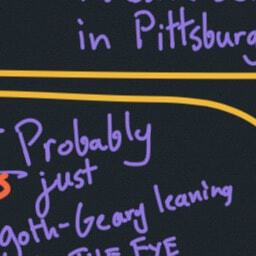 in Pittsburg
Probably
just
goth-Geary leaning
THE EYE